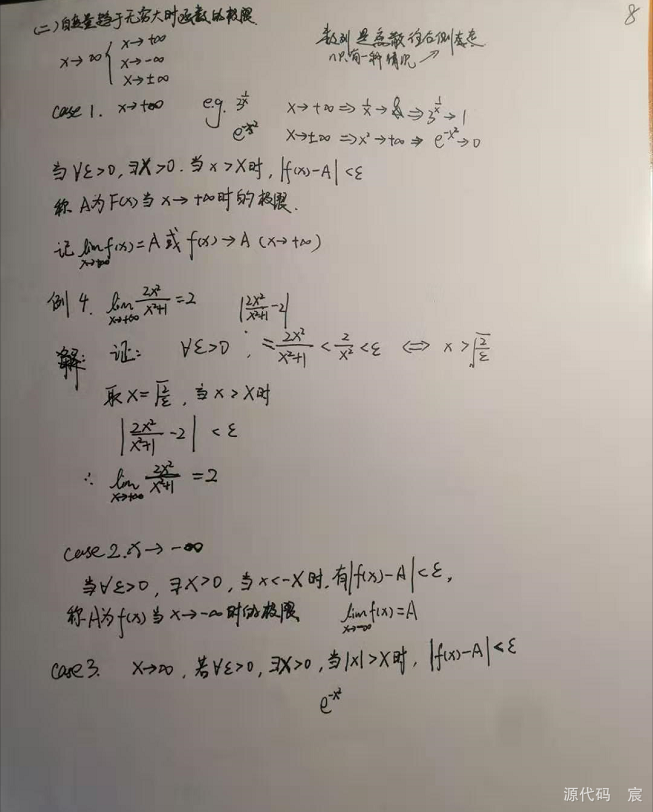 8
(二)自变量趋于无穷大时函数的极限
x→∞ { x→+∞
x→-∞
x→±∞
数列是离散
n只有一种情况
case 1. x→+∞ e.g. 3^{1/x} x→+∞ ⇒ 1/x→0 ⇒ 3^{1/x}→1
e^{-x²} x→±∞ ⇒ x²→+∞ ⇒ e^{-x²}→0
当∀ε>0,∃X>0. 当x>X时, |f(x)-A|<ε
称A为F(x)当x→+∞时的极限.
记 lim_{x→+∞} f(x)=A 或 f(x)→A (x→+∞)
例4. lim_{x→+∞} 2x²/(x²+1) =2 |2x²/(x²+1) -2|
解: 证: ∀ε>0 , = 2x²/(x²+1) < 2/x² < ε ⇔ x>√(2/ε)
取X=√(2/ε), 当x>X时
|2x²/(x²+1) -2| <ε
∴ lim_{x→+∞} 2x²/(x²+1) =2
case2. x→-∞
当∀ε>0, ∃X>0, 当x<-X时.有|f(x)-A|<ε,
称A为f(x)当x→-∞时的极限 lim_{x→-∞} f(x)=A
case3. x→∞, 若∀ε>0, ∃X>0, 当|x|>X时, |f(x)-A|<ε
e^{-x²}
源代码 宸